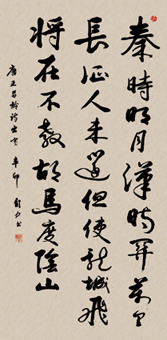 秦時明月漢時關萬里
長征人未還但使龍城飛
將在不教胡馬度陰山
唐王昌齡詩出塞 辛卯 書